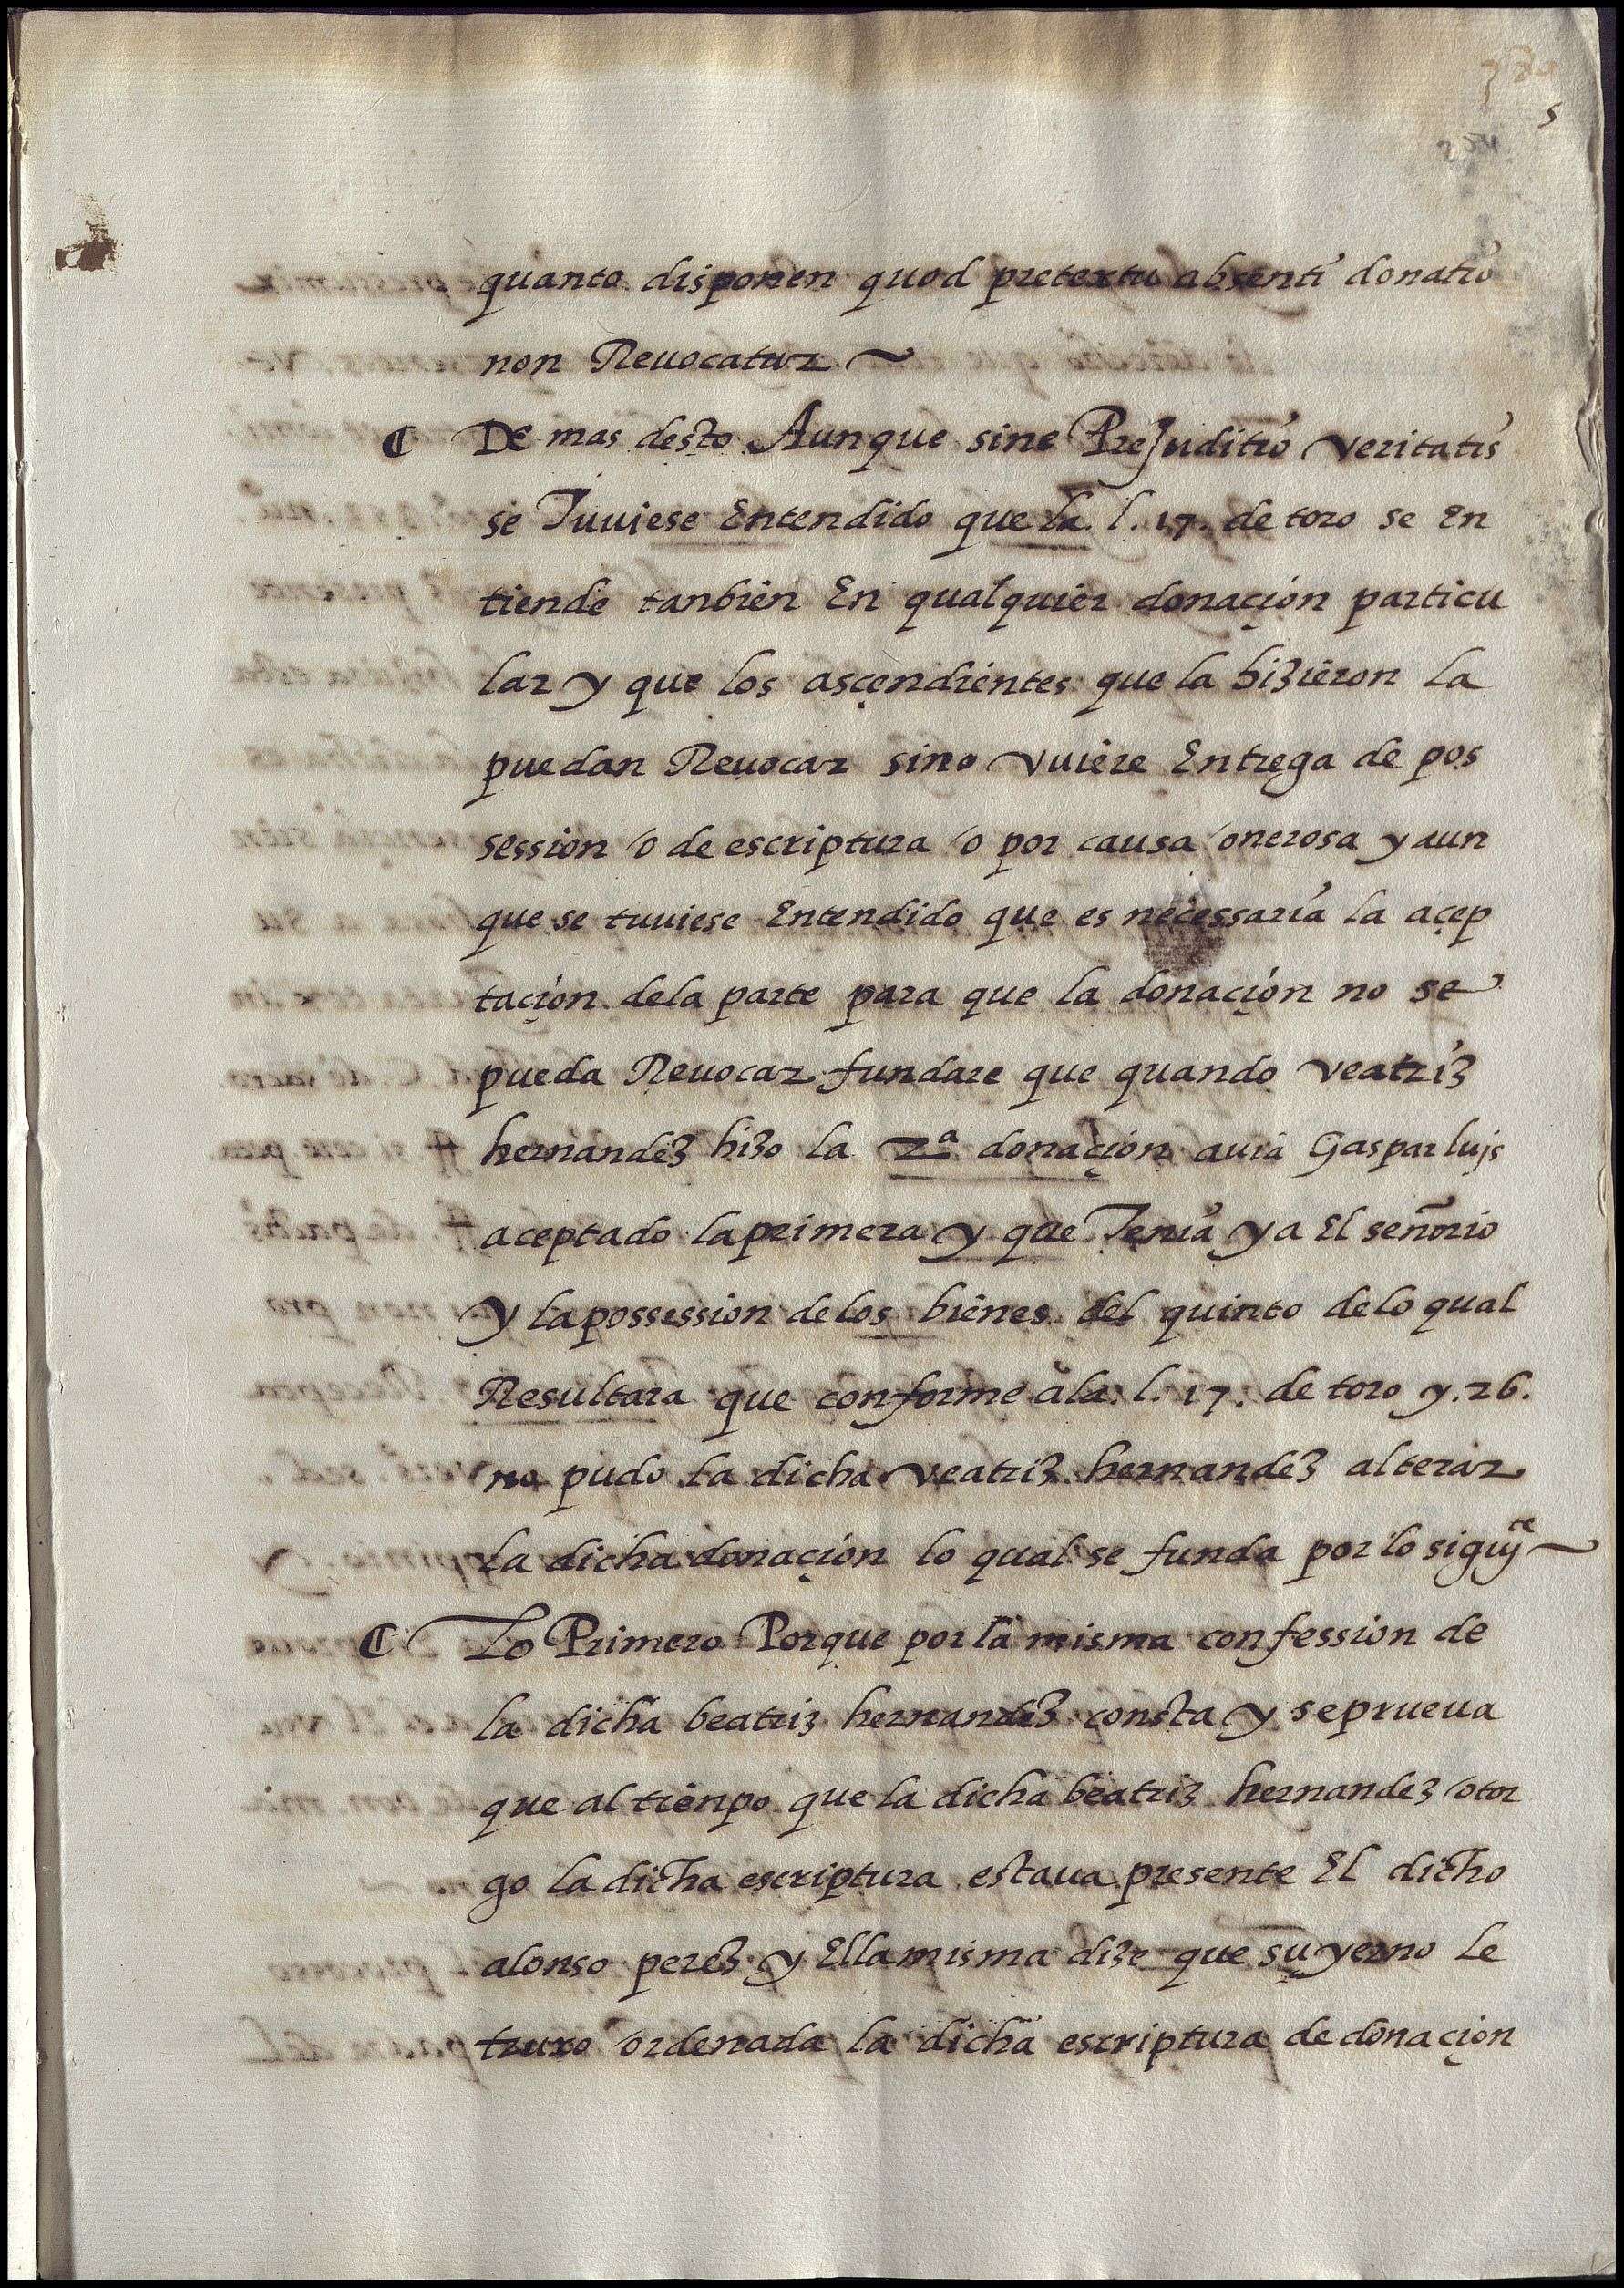 5
254
quanto disponen quod pretextu absenti donatio
non Reuocatur ~
C De mas desto Aunque sine PreJuditio veritatis
se Tuuiese Entendido que la l. 17. de toro se en
tiende tanbien En qualquier donaçion particu
lar y que los asçendientes que la hizieron la
puedan Reuocar sino vuiere Entrega de pos
session o de escriptura o por causa onerosa y aun
que se tuuiese Entendido que es necessaria la açep
taçion dela parte para que la donaçion no se
pueda Reuocar fundare que quando veatriz
hernandez hizo la 2ª donaçion auia Gaspar luis
aceptado la primera y que Tenia ya El señorio
y la possession de los bienes del quinto de lo qual
Resultara que conforme a la l. 17. de toro y. 26.
no pudo la dicha veatriz hernandez alterar
la dicha donaçion lo qual se funda por lo siguyte ~
C Lo Primero Porque por la misma confession de
la dicha beatriz hernandez consta y se prueua
que al tienpo que la dicha beatriz hernandez otor
go la dicha escriptura estaua presente El dicho
alonso perez y Ella misma dize que su yerno le
truxo ordenada la dicha escriptura de donaçion